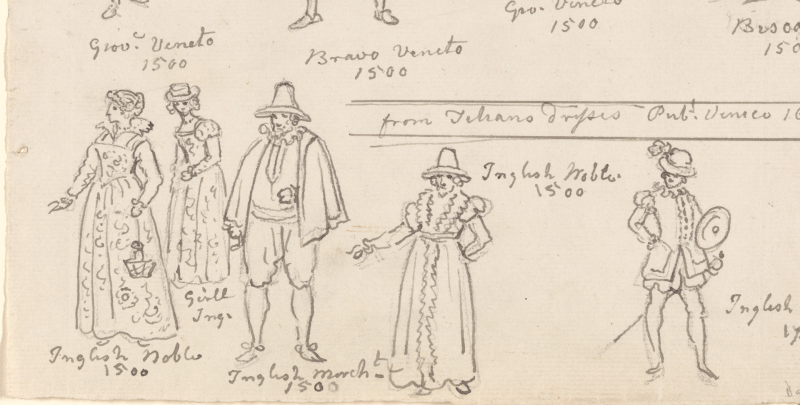 Giov.e Veneto
1500
Bravo Veneto
1500
Gio. Veneto
1500
150
from Titians dresses Pub.d Venice 1
Inglish Noble.
1500
Girll
Ing.
Inglish Noble
1500
Inglish March.t
1500
Inglish